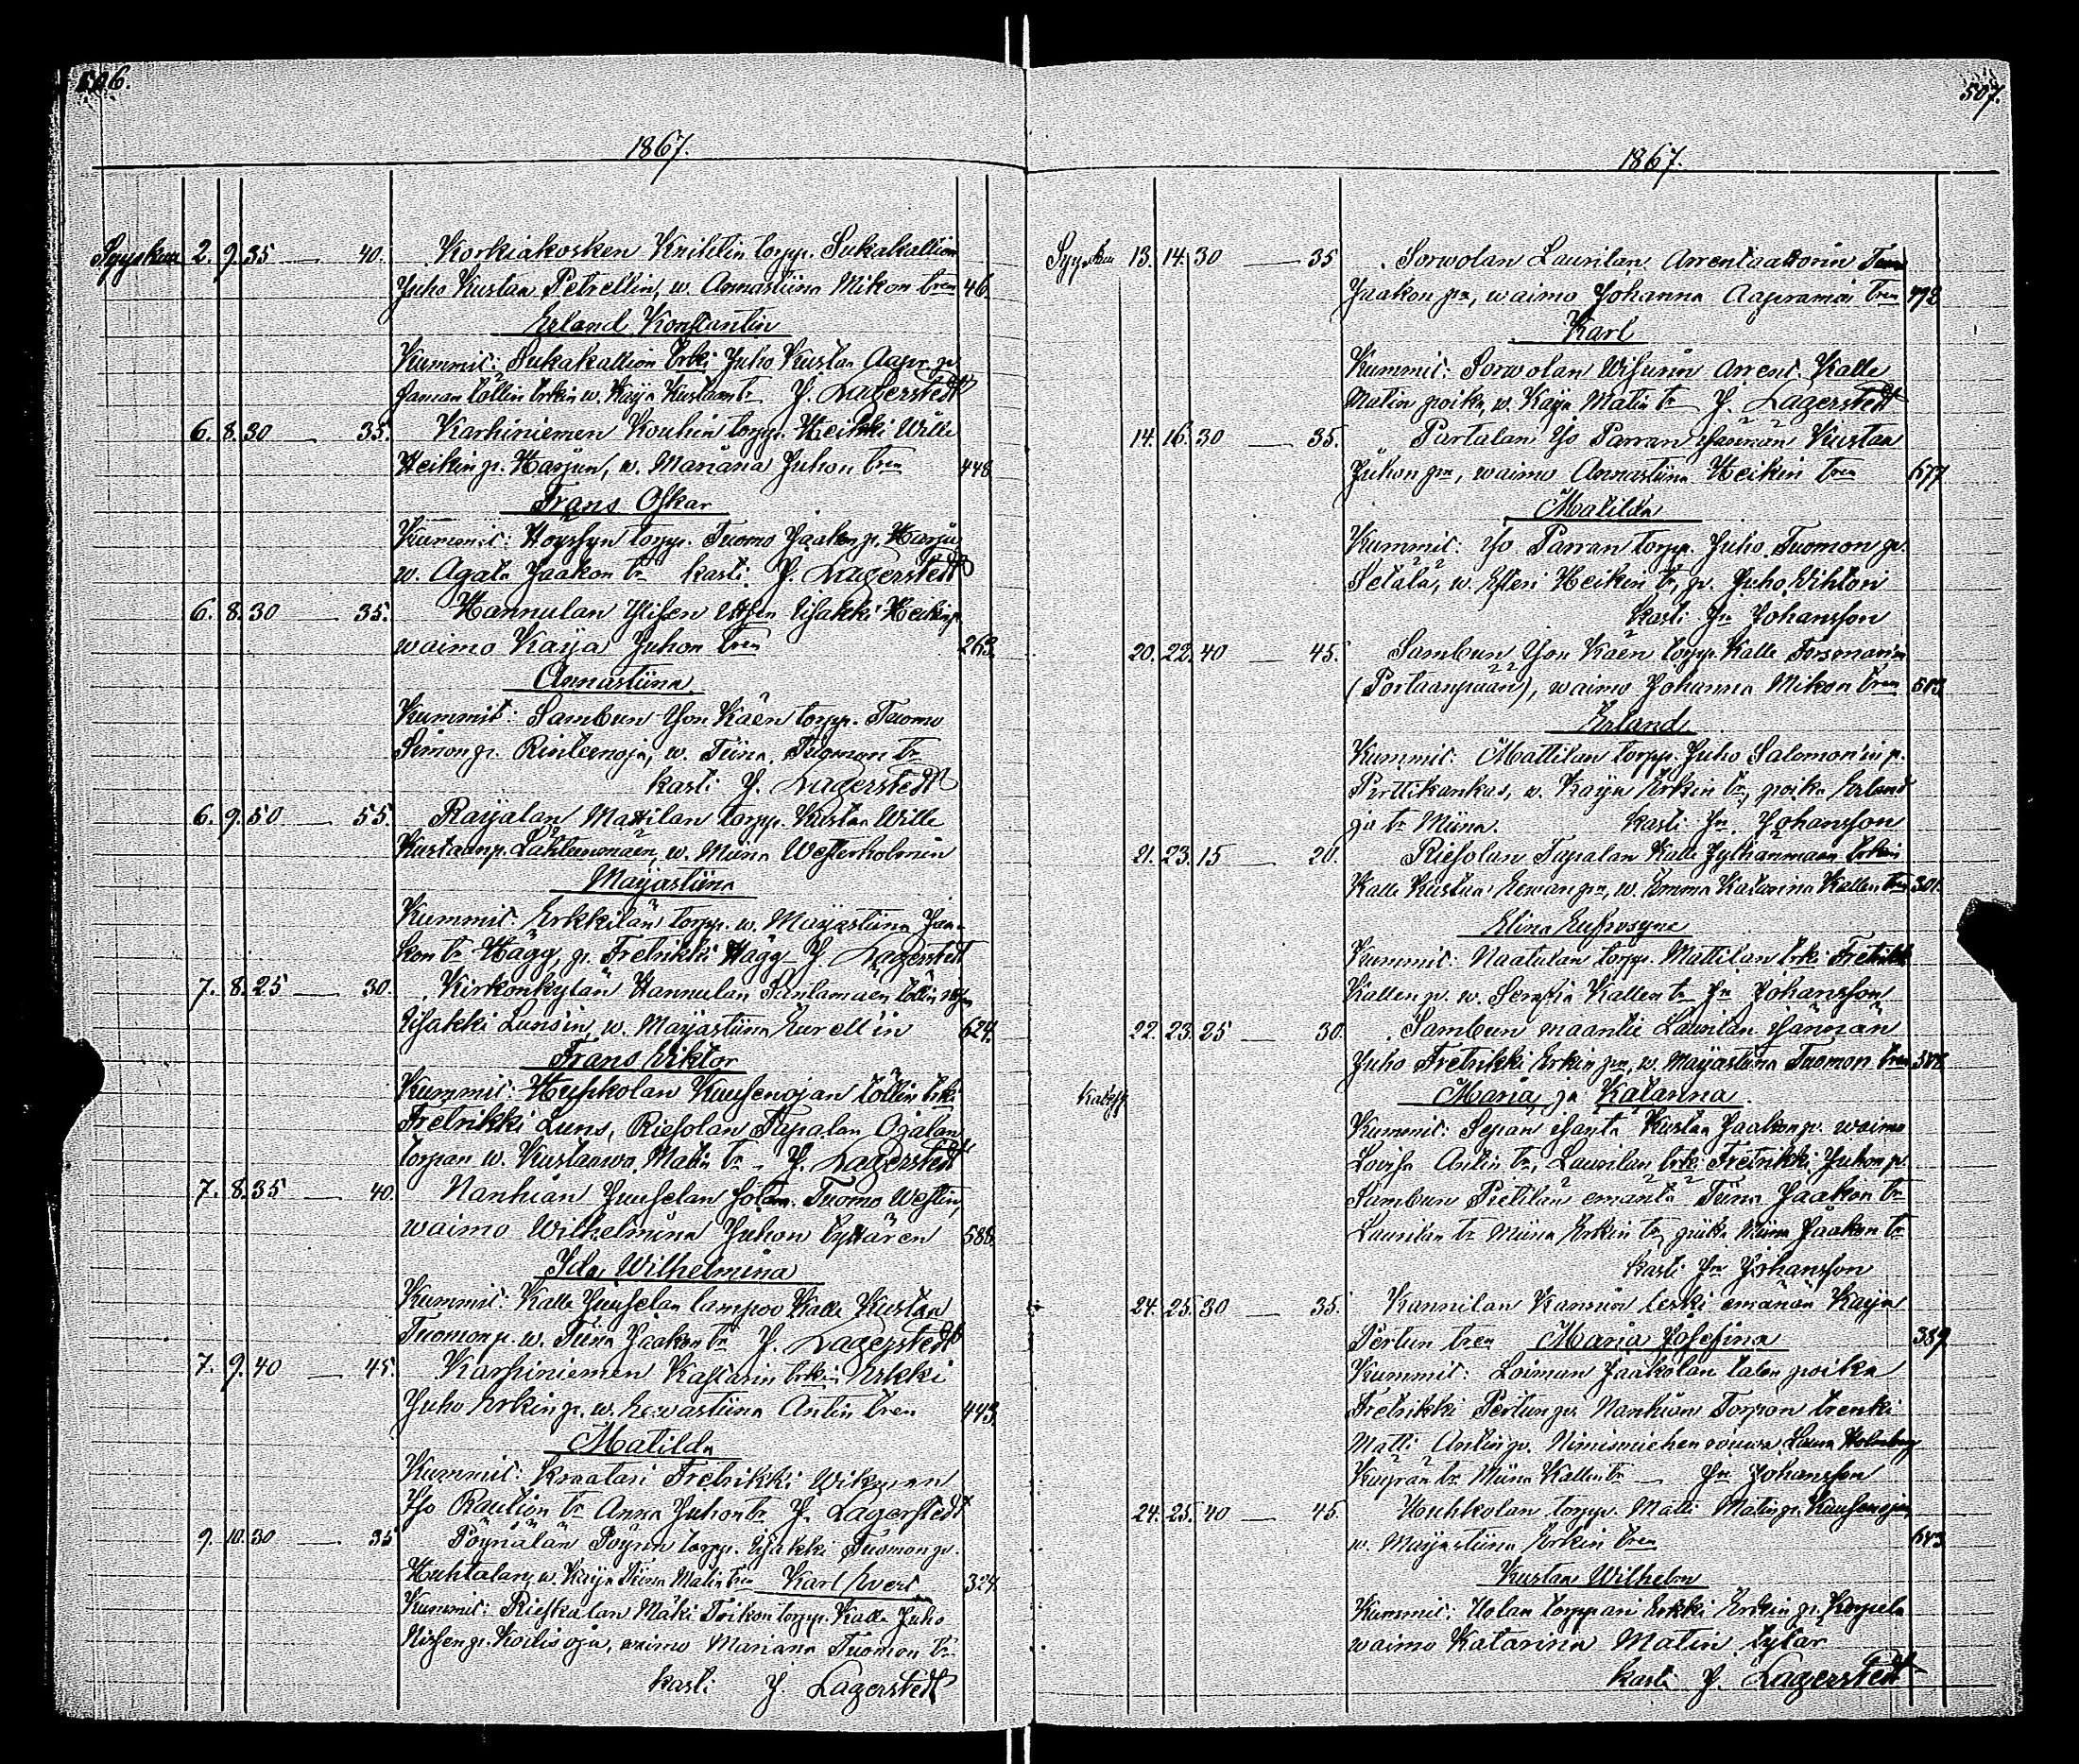 506.
1867.
Syyskuu 2. 9. 35 — 40. Korkiakosken Krihtin torpp. Sukakallion
Juho Kustan Petrellin, w. Annastiina Mikon tren 46.
Erland Konstantin
Kummit: Sukakallion trki Juho Kustan Aapr. p.
töllin trkin w. Kaija Kustaan tr J. Lagerstedt
6. 8. 30 — 35. Karhiniemen Kouhin torpp. Heikki Wille
Heikin p. Harjun, w. Mariana Juhon tren 448
Frans Oskar
Kummit: torpp. Tuomo Jaakon p. Harju
w. Agata Jaakon tr kasti J. Lagerstedt
6. 8. 30 — 35. Hannulan Ylisen Isakki Heikin p.
waimo Kaija Juhon tren 263.
Annastiina
Kummit: Sambun Yon Käen torpp. Tuomo
Simon p. Rinteenoja, w. Tiina Tuomon tr
kasti J. Lagerstedt
6. 9. 50 — 55. Raijalan Mattilan torpp. Kustan Wille
Kustaan p. Lähteenmäen, w. Miina Westerholmin
Maijastiina
Kummit: Erkkilän torpp. w. Maijastiina Jaa-
kon tr Hägg, p. Fretrikki Hägg J. Lagerstedt
7. 8. 25 — 30. Kirkonkylän Hannulan Säntämäen töllin
Isakki Luns'in, w. Maijastiina Eurell'in 624.
Frans Wiktor
Kummit: Huhkolan Kuusenojan töllin trki
Fretrikki Luns, Riesolan Tapalan Ojalan
torpan w. Kustaawa Matin tr J. Lagerstedt
7. 8. 35 — 40. Nanhian Juuselan sotam. Tuomo Westin,
waimo Wilhelmina Juhon tyttären 588
Ida Wilhelmina
Kummit: Kalle Juuselan lampuo Kalle Kustan
Tuomon p. w. Tiina Jaakon tr J. Lagerstedt
7. 9. 40 — 45. Karhiniemen Kastarin trkin Erkki
Juho Erkin p. w. Eewastiina Antin tren 443.
Matilda
Kummit: kraatari Fretrikki Wikman
Iso Raution tr Anna Juhon tr J. Lagerstedt
9. 10. 30 — 35 Pöyriälän Pöyrin torpp. Isakki Tuomon p.
Huhtalan, w. Kaija Tiina Matin tren Karl Evert 324.
Kummit: Rieskalan Mäki torpp. Kalle Juho
p. Koilisoja, waimo Mariana Tuomon tr
kasti J. Lagerstedt
507.
1867.
Syyskuu 13. 14. 30 — 35 Sorwolan Laurilan Arrentaattorin
Jaakon pn, waimo Johanna Aapramin tren 492
Karl
Kummit: Sorwolan Wisurin Arrent. Kalle
Matin poika, w. Kaija Matin tr J. Lagerstedt
14. 16. 30 — 35. Partalan Iso Parran isännän Kustan
Juhon pn, waimo Annastiina Heikin tren 677
Matilda
Kummit: Iso Parran torpp. Juho Tuomon p.
Setälä, w. Esteri Heikin tr, p. Juho Wihtori
kasti Jn Johansson
20. 22. 40 — 45. Sambun Yon Käen torpp. Kalle Forsman'in
(Portaanpään), waimo Johanna Mikon tren 503
Erland
Kummit: Mattilan torpp. Juho Salomon'in p.
Perttikankas, w. Kaija Erkin tr, poika Erland
ja tr Miina. kasti Jn Johansson
21. 23. 15 — 20. Riesolan Tapalan Kalle trkin
Kalle Kustaa p n, w. Emma Katarina Kallen tren 301.
Elina Eufrosyne
Kummit: Naatulan torpp. Mattilan trki Fretrikki
Kallen p. w. Serafia Kallen tr Jn Johansson
22. 23. 25 — 30. Sambun maantie Laurilan isännän
Juho Fretrikki Erkin pn, w. Maijastiina Tuomon tren 508
Kaksoset Maria ja Katarina.
Kummit: Sepän isäntä Kustaa Jaakon p. waimo
Lovisa Antin tr, Laurilan trki Fretrikki Juhon p.
Sambun Pietilän emäntä Tiina Jaakon tr
Laurilan tr Miina Erkin tr, piika Miina Jaakon tr
kasti Jn Johansson
24. 25. 30 — 35. Kannilan Kannin leski emännän Kaija
Pertun tren Maria Josefina 389.
Kummit: Loiman Jaakolan talon poika
Fretrikki Pertun p. Nanhian Torpon trenki
Matti Antin p. Nimismiehen rouwa Laura Holmberg
tr. Miina Kallen tr — Jn Johansson
24. 25. 40 — 45. Huhkolan torpp. Matti Matin p. Kuusenojan
w. Maijastiina Erkin tren 643
Kustaa Wilhelm
Kummit: Uolan torppari Erkki Erkin p. Korpela
waimo Katarina Matin tytar
kasti J. Lagerstedt